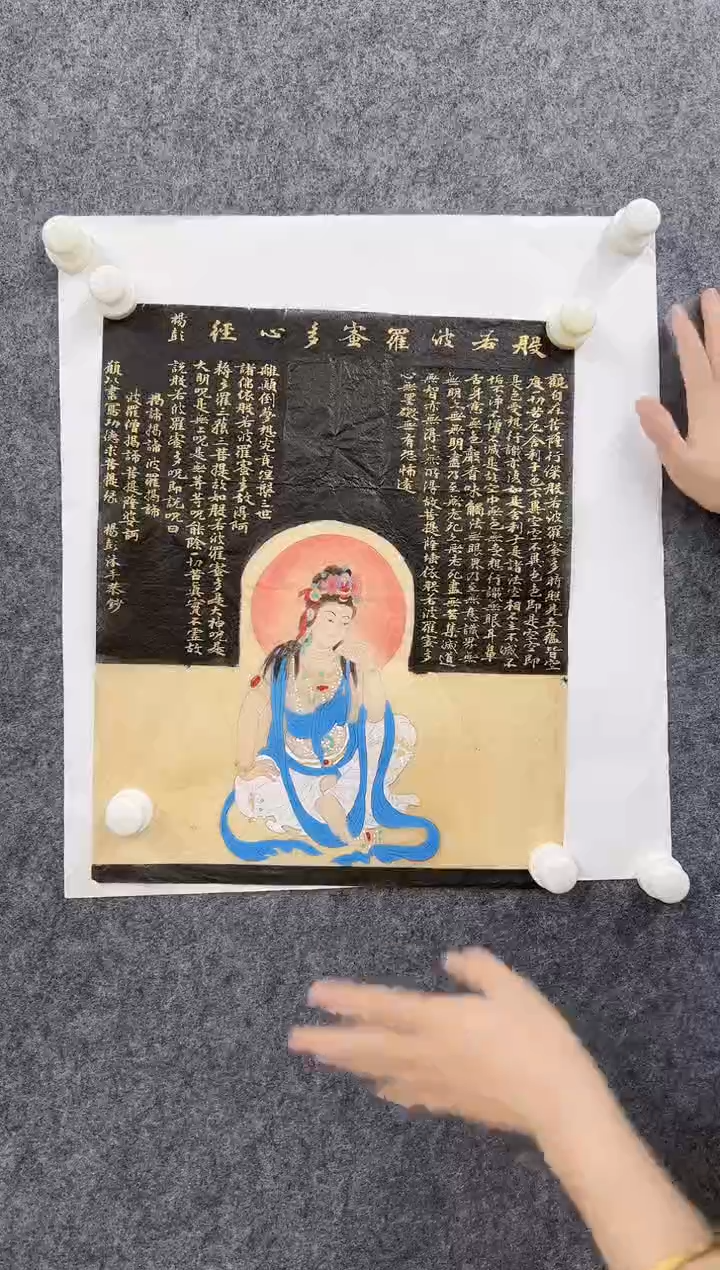 般若波羅蜜多心經 楊彭
觀自在菩薩行深般若波羅蜜多時照見五蘊皆空
度一切苦厄舍利子色不異空空不異色色即是空空即
是色受想行識亦復如是舍利子是諸法空相不生不滅不
垢不淨不增不減是故空中無色無受想行識無眼耳鼻
舌身意無色聲香味觸法無眼界乃至無意識界無
無明亦無無明盡乃至無老死亦無老死盡無苦集滅道
無智亦無得以無所得故菩提薩埵依般若波羅蜜多
心無罣礙無有恐怖遠
離顛倒夢想究竟涅槃三世
諸佛依般若波羅蜜多故得阿
耨多羅三藐三菩提故知般若波羅蜜多是大神呪是
大明呪是無上呪是無等等呪能除一切苦真實不虛故
說般若波羅蜜多呪即說呪曰
揭諦揭諦波羅揭諦
波羅僧揭諦菩提薩婆訶
願以書寫功德求菩提緣 楊彭沐手恭鈔